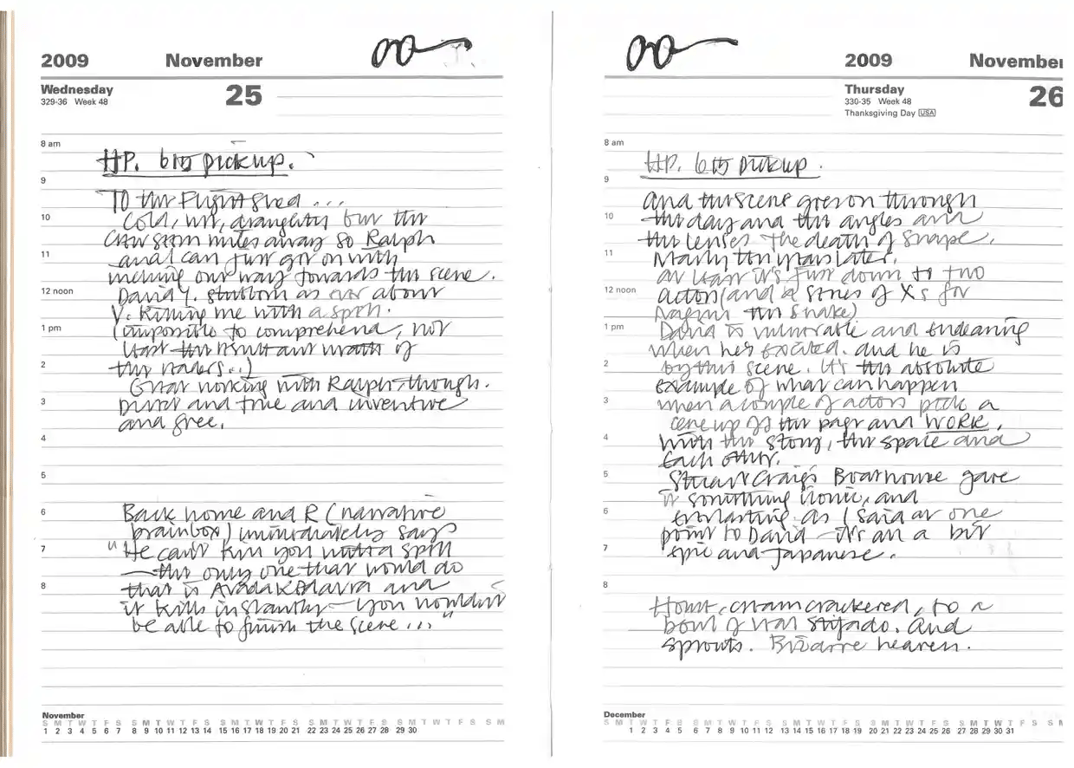 2009 November
Wednesday 25
329-36 Week 48
8 am
HP. 6.15 pickup.
9
To the Flight Shed ...
10
Cold, wet, draughty but the
crew seem miles away so Ralph
11
and I can just get on with
inching our way towards the scene.
12 noon
David Y. stubborn as ever about
V. killing me with a spell.
1 pm
(Impossible to comprehend, not
least the resultant wrath of
2
the readers...)
Great working with Ralph, though.
3
Direct and true and inventive
and free.
4
5
6
Back home and R (narrative
brainbox) immediately says
7
"He can't kill you with a spell
– the only one that would do
8
that is Avada Kedavra and
it kills instantly – you wouldn't
be able to finish the scene..."
November
S M T W T F S S M T W T F S S M T W T F S S M T W T F S S M T W T F S S M
1 2 3 4 5 6 7 8 9 10 11 12 13 14 15 16 17 18 19 20 21 22 23 24 25 26 27 28 29 30
2009 November
Thursday 26
330-35 Week 48
Thanksgiving Day USA
8 am
HP. 6.15 pickup.
9
And the scene goes on through
10
the day and the angles and
the lenses. The death of Snape.
11
Nearly ten years later.
At least it's just down to two
12 noon
actors (and a series of Xs for
Nagini the Snake)
1 pm
David is vulnerable and endearing
when he's excited. and he is
2
by this scene. It's the absolute
example of what can happen
3
when a couple of actors pick a
scene up off the page and WORK.
4
with the story, the space and
each other.
5
Stuart Craig's Boathouse gave
it something ironic, and
6
everlasting. As I said at one
point to David – it's all a bit
7
epic and Japanese.
8
Home, cream crackered, to a
bowl of hot stifado. And
sprouts. Bizarre heaven.
December
S M T W T F S S M T W T F S S M T W T F S S M T W T F S S M T W T F S S M
1 2 3 4 5 6 7 8 9 10 11 12 13 14 15 16 17 18 19 20 21 22 23 24 25 26 27 28 29 30 31